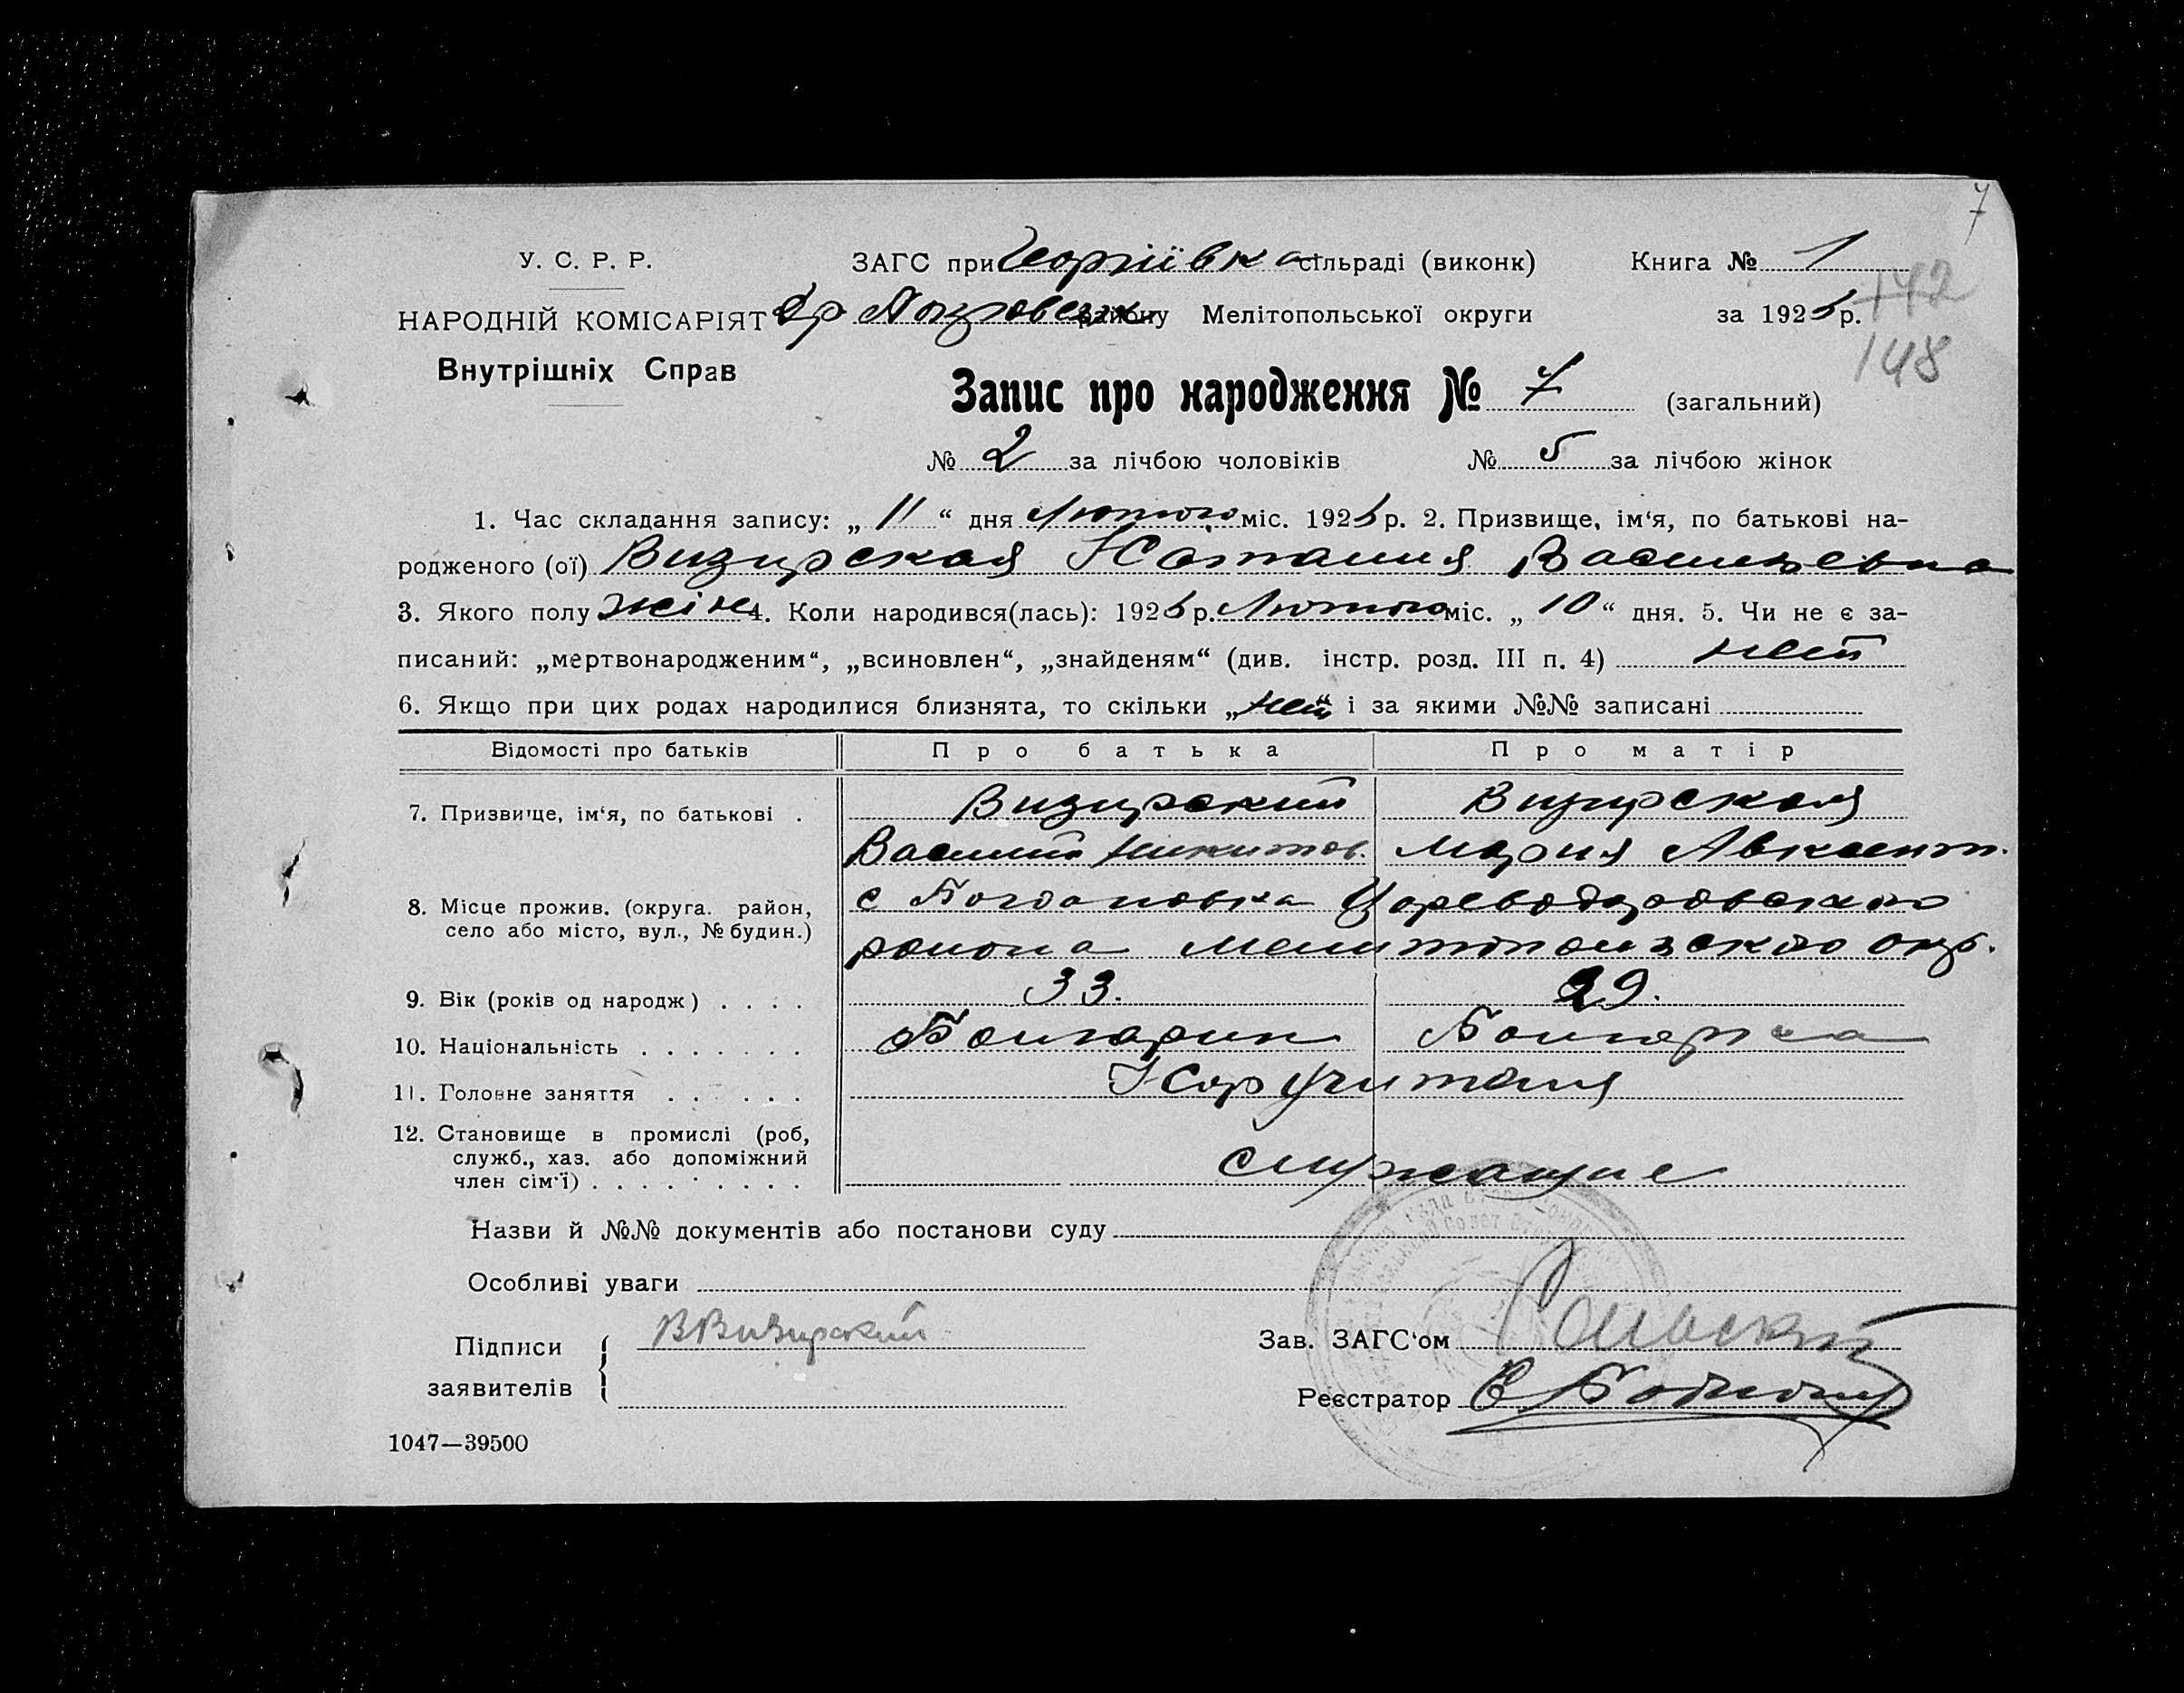 7
У. С. Р. Р.
ЗАГС при Георгіївка сільраді (виконк)
Книга № 1
142
НАРОДНІЙ КОМІСАРІЯТ
району Мелітопольської округи
за 1925 р.
148
Внутрішніх Справ
Запис про народження № 7 (загальний)
№ 2 за лічбою чоловіків № 5 за лічбою жінок
1. Час складання запису: „ 11 “ дня Лютого міс. 1925 р. 2. Призвище, ім‘я, по батькові на-
родженого (ої) Визирская Наталия Васильевна
3. Якого полу жін 4. Коли народився(лась): 1925 р. Лютого міс. „ 10 “ дня. 5. Чи не є за-
писаний: „мертвонародженим“, „всиновлен“, „знайденям“ (див. інстр. розд. III п. 4) нет
6. Якщо при цих родах народилися близнята, то скільки „нет“ і за якими №№ записані
Відомості про батьків Про батька Про матір
7. Призвище, ім‘я, по батькові . Визирский Визирская
Василий Никитов. Мария Авксент.
8. Місце прожив. (округа. район, с Богдановка Цареводаровского
село або місто, вул., № будин.) района Мелитопольского окр.
9. Вік (років од народж) . . . . 33. 29.
10. Національність . . . . . . . Болгарин Болгарка
11. Головне заняття . . . . . . Нар учителя
12. Становище в промислі (роб,
служб., хаз. або допоміжний
член сім‘ї) . . . . . . . . . служащие
Назви й №№ документів або постанови суду
Особливі уваги
Підписи ВВизирский
заявителів
Зав. ЗАГС‘ом
Реєстратор
1047—39500